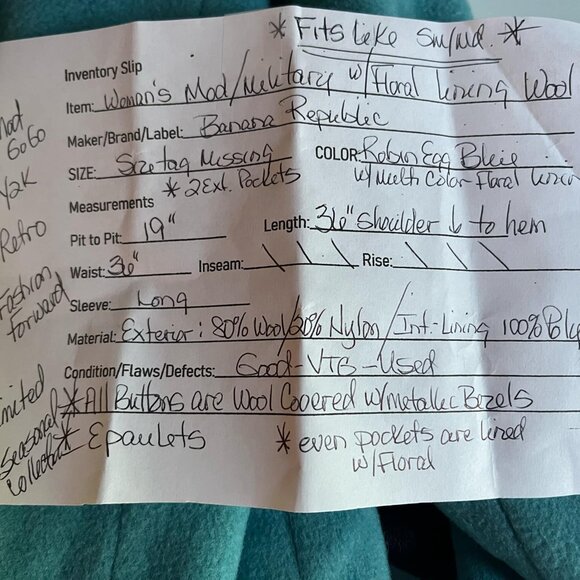 * Fits Like Sm/Md. *
Inventory Slip
Item: Woman's Mod/Military w/ Floral Lining Wool
Maker/Brand/Label: Banana Republic
SIZE: Size tag Missing COLOR: Robin Egg Blue
* 2 Ext. Pockets w/Multi Color Floral
Measurements
Pit to Pit: 19" Length: 36" Shoulder to hem
Waist: 36" Inseam: \ \ \ Rise: \ \ \
Sleeve: Long
Material: Exterior: 80% Wool/20% Nylon/Int-Lining 100% Poly
Condition/Flaws/Defects: Good-VTG-Used
* All Buttons are Wool Covered w/metallic Bezels
* Epaulets * even pockets are lined
w/Floral
GoGo
Y2K
Retro
Fashion
forward
Limited
Seasonal
Collection